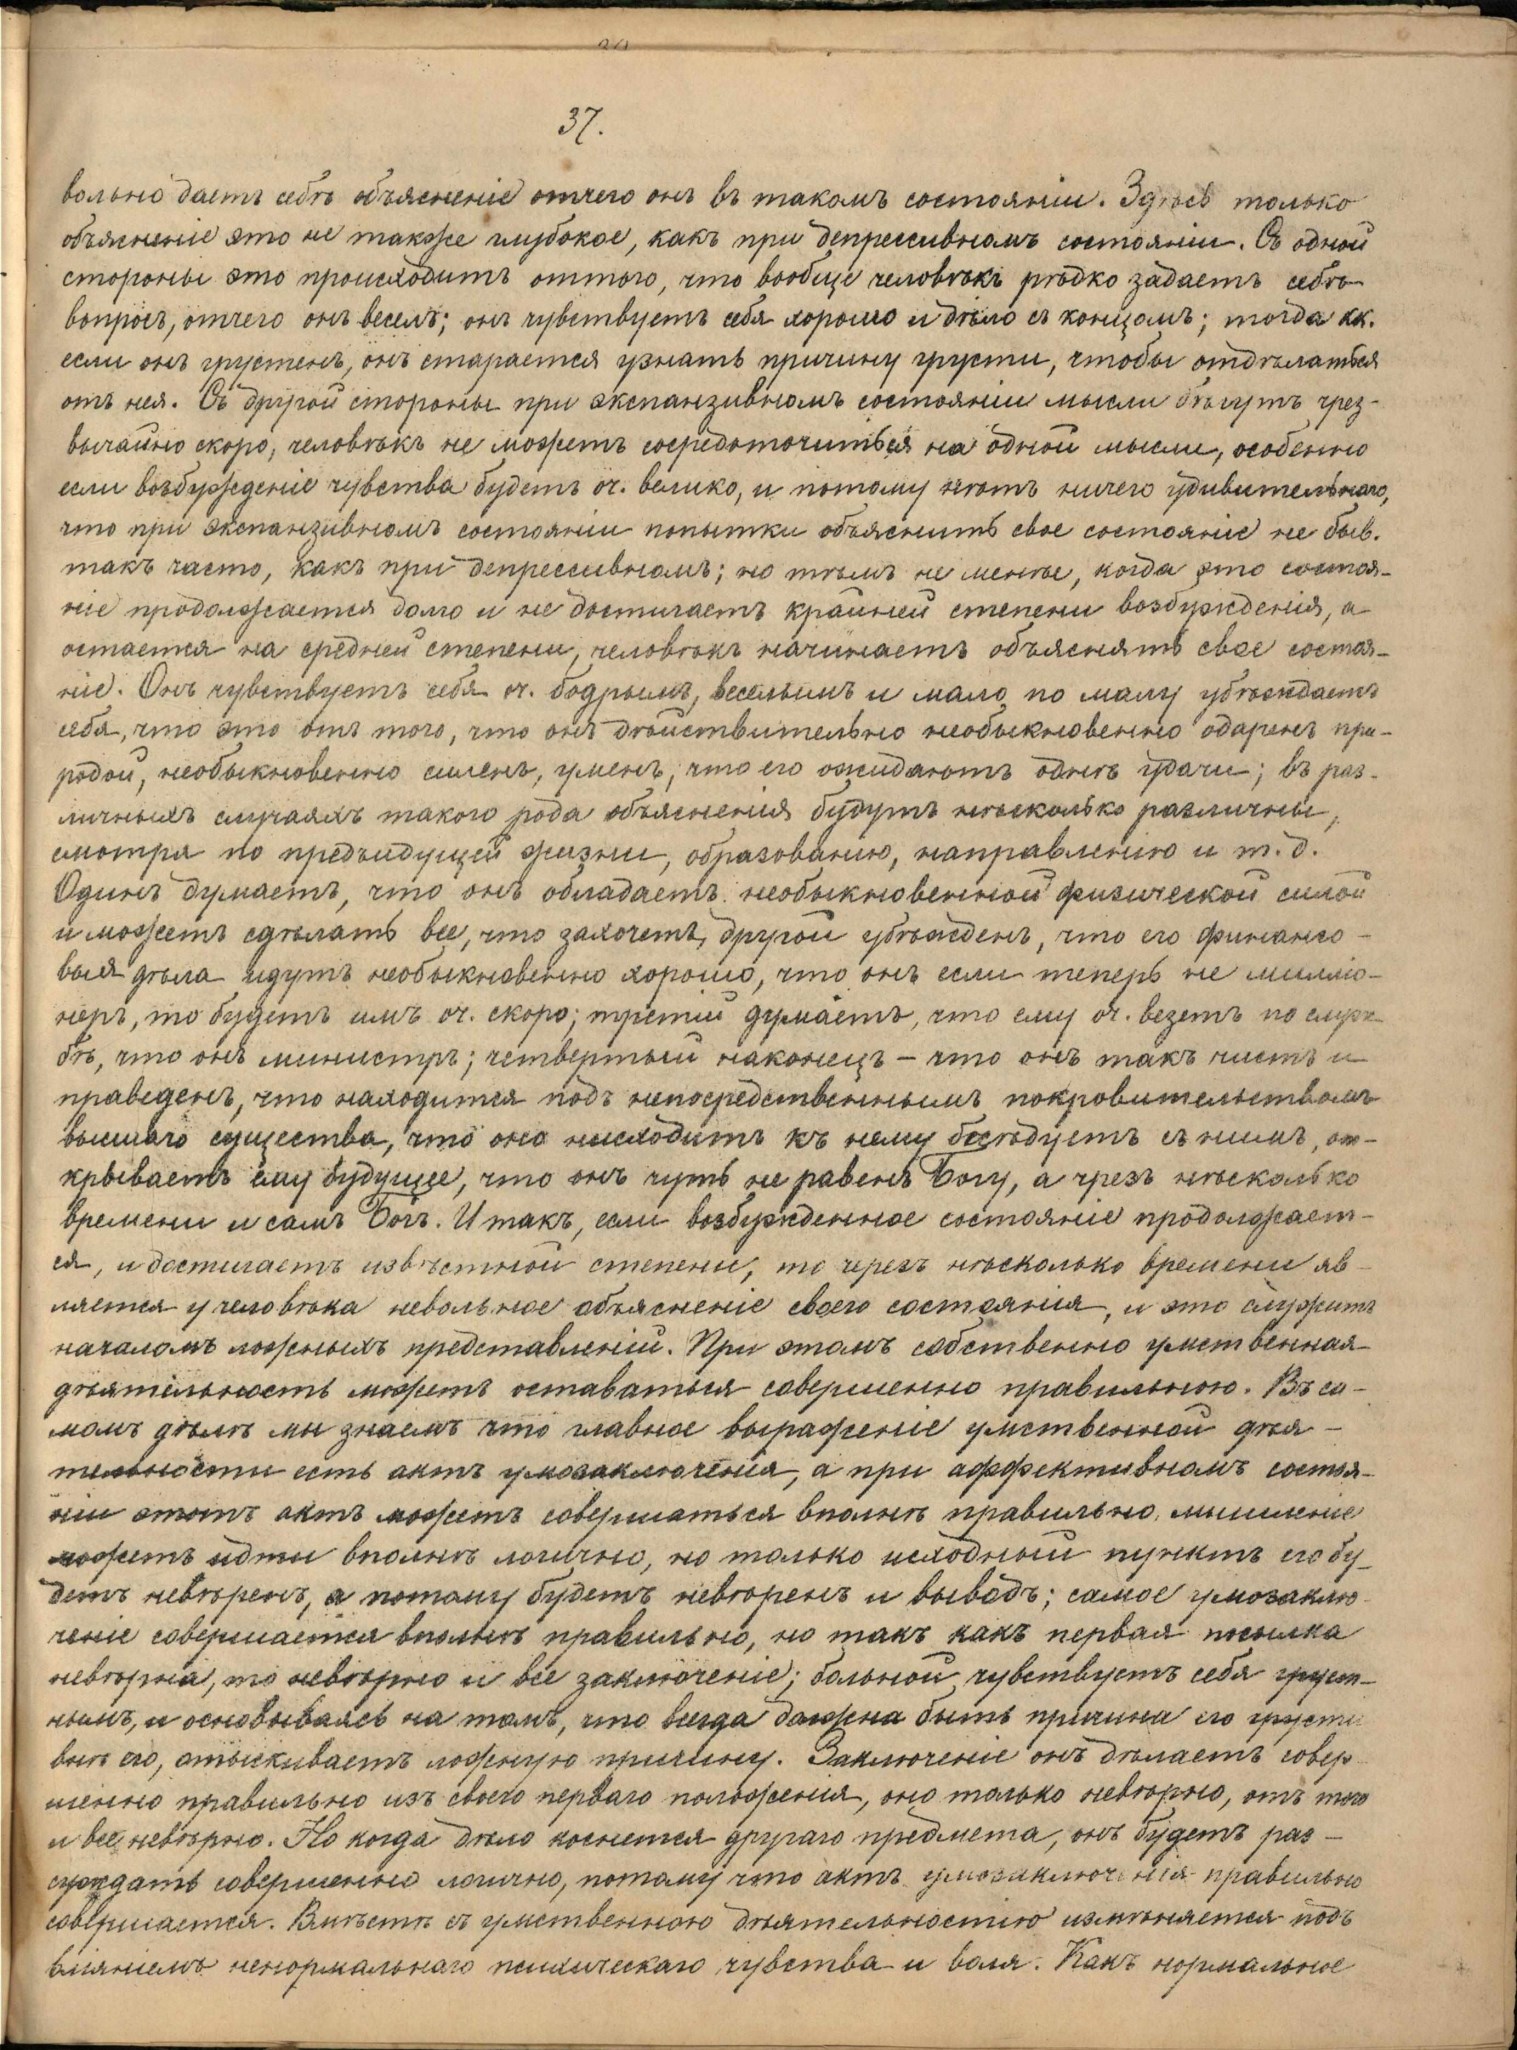 37.
вольно даетъ себѣ объясненіе отчего онъ въ такомъ состояніи. Здѣсь только
объясненіе это не такъже глубокое, какъ при депрессивномъ состояніи. Съ одной
стороны это происходитъ оттого, что вообще человѣкъ рѣдко задаетъ себѣ
вопросъ, отчего онъ веселъ; онъ чувствуетъ себя хорошо и дѣло съ концомъ; тогда кк.
если онъ грустенъ, онъ старается узнать причину грусти, чтобы отдѣлаться
отъ нея. Съ другой стороны при экспанзивномъ состояніи мысли бѣгутъ чрез-
вычайно скоро, человѣкъ не можетъ сосредоточиться на одной мысли, особенно
если возбужденіе чувства будетъ оч. велико, и потому нѣтъ ничего удивительнаго,
что при экспанзивномъ состояніи попытки объяснить свое состояніе не быв.
такъ часто, какъ при депрессивномъ; но тѣмъ не менѣе, когда это состоя-
ніе продолжается долго и не достигаетъ крайней степени возбужденія, а
остается на средней степени, человѣкъ начинаетъ объяснять свое состоя-
ніе. Онъ чувствуетъ себя оч. бодрымъ, веселымъ и мало по малу убѣждаетъ
себя, что это отъ того, что онъ дѣйствительно необыкновенно одаренъ при-
родой, необыкновенно силенъ, уменъ, что его ожидаютъ однѣ удачи; въ раз-
личныхъ случаяхъ такого рода объясненія будутъ нѣсколько различны,
смотря по предъидущей жизни, образованію, направленію и т. д.
Одинъ думаетъ, что онъ обладаетъ необыкновенной физической силой
и можетъ сдѣлать все, что захочетъ, другой убѣжденъ, что его финансо-
выя дѣла идутъ необыкновенно хорошо, что онъ если теперь не милліо-
неръ, то будетъ имъ оч. скоро; третій думаетъ, что ему оч. везетъ по служ-
бѣ, что онъ министръ; четвертый наконецъ – что онъ такъ чистъ и
праведенъ, что находится подъ непосредственнымъ покровительствомъ
высшаго существа, что оно нисходитъ къ нему бесѣдуетъ съ нимъ, от-
крываетъ ему будущее, что онъ чуть не равенъ Богу, а чрезъ нѣсколько
времени и самъ Богъ. Итакъ, если возбужденное состояніе продолжает-
ся, и достигаетъ извѣстной степени, то черезъ нѣсколько времени яв-
ляется у человѣка невольное объясненіе своего состоянія, и это служитъ
началомъ ложныхъ представленій. При этомъ собственно умственная
дѣятельность можетъ оставаться совершенно правильною. Въ са-
момъ дѣлѣ мы знаемъ что главное выраженіе умственной дѣя-
тельности есть актъ умозаключенія, а при аффективномъ состоя-
ніи этотъ актъ можетъ совершаться вполнѣ правильно, мышленіе
можетъ идти вполнѣ логично, но только исходный пунктъ его бу-
детъ невѣренъ, а потому будетъ невѣренъ и выводъ; самое умозаклю-
ченіе совершается вполнѣ правильно, но такъ какъ первая посылка
невѣрна, то невѣрно и все заключеніе; больной чувствуетъ себя груст-
нымъ, и основываясь на томъ, что всегда должна быть причина его грусти
внѣ его, отыскиваетъ ложную причину. Заключеніе онъ дѣлаетъ совер-
шенно правильно изъ своего перваго положенія, оно только невѣрно, отъ того
и все невѣрно. Но когда дѣло коснется другаго предмета, онъ будетъ раз-
суждать совершенно логично, потому что актъ умозаключенія правильно
совершается. Вмѣстѣ съ умственною дѣятельностію измѣняется подъ
вліяніемъ ненормальнаго психическаго чувства и воля. Какъ нормальное